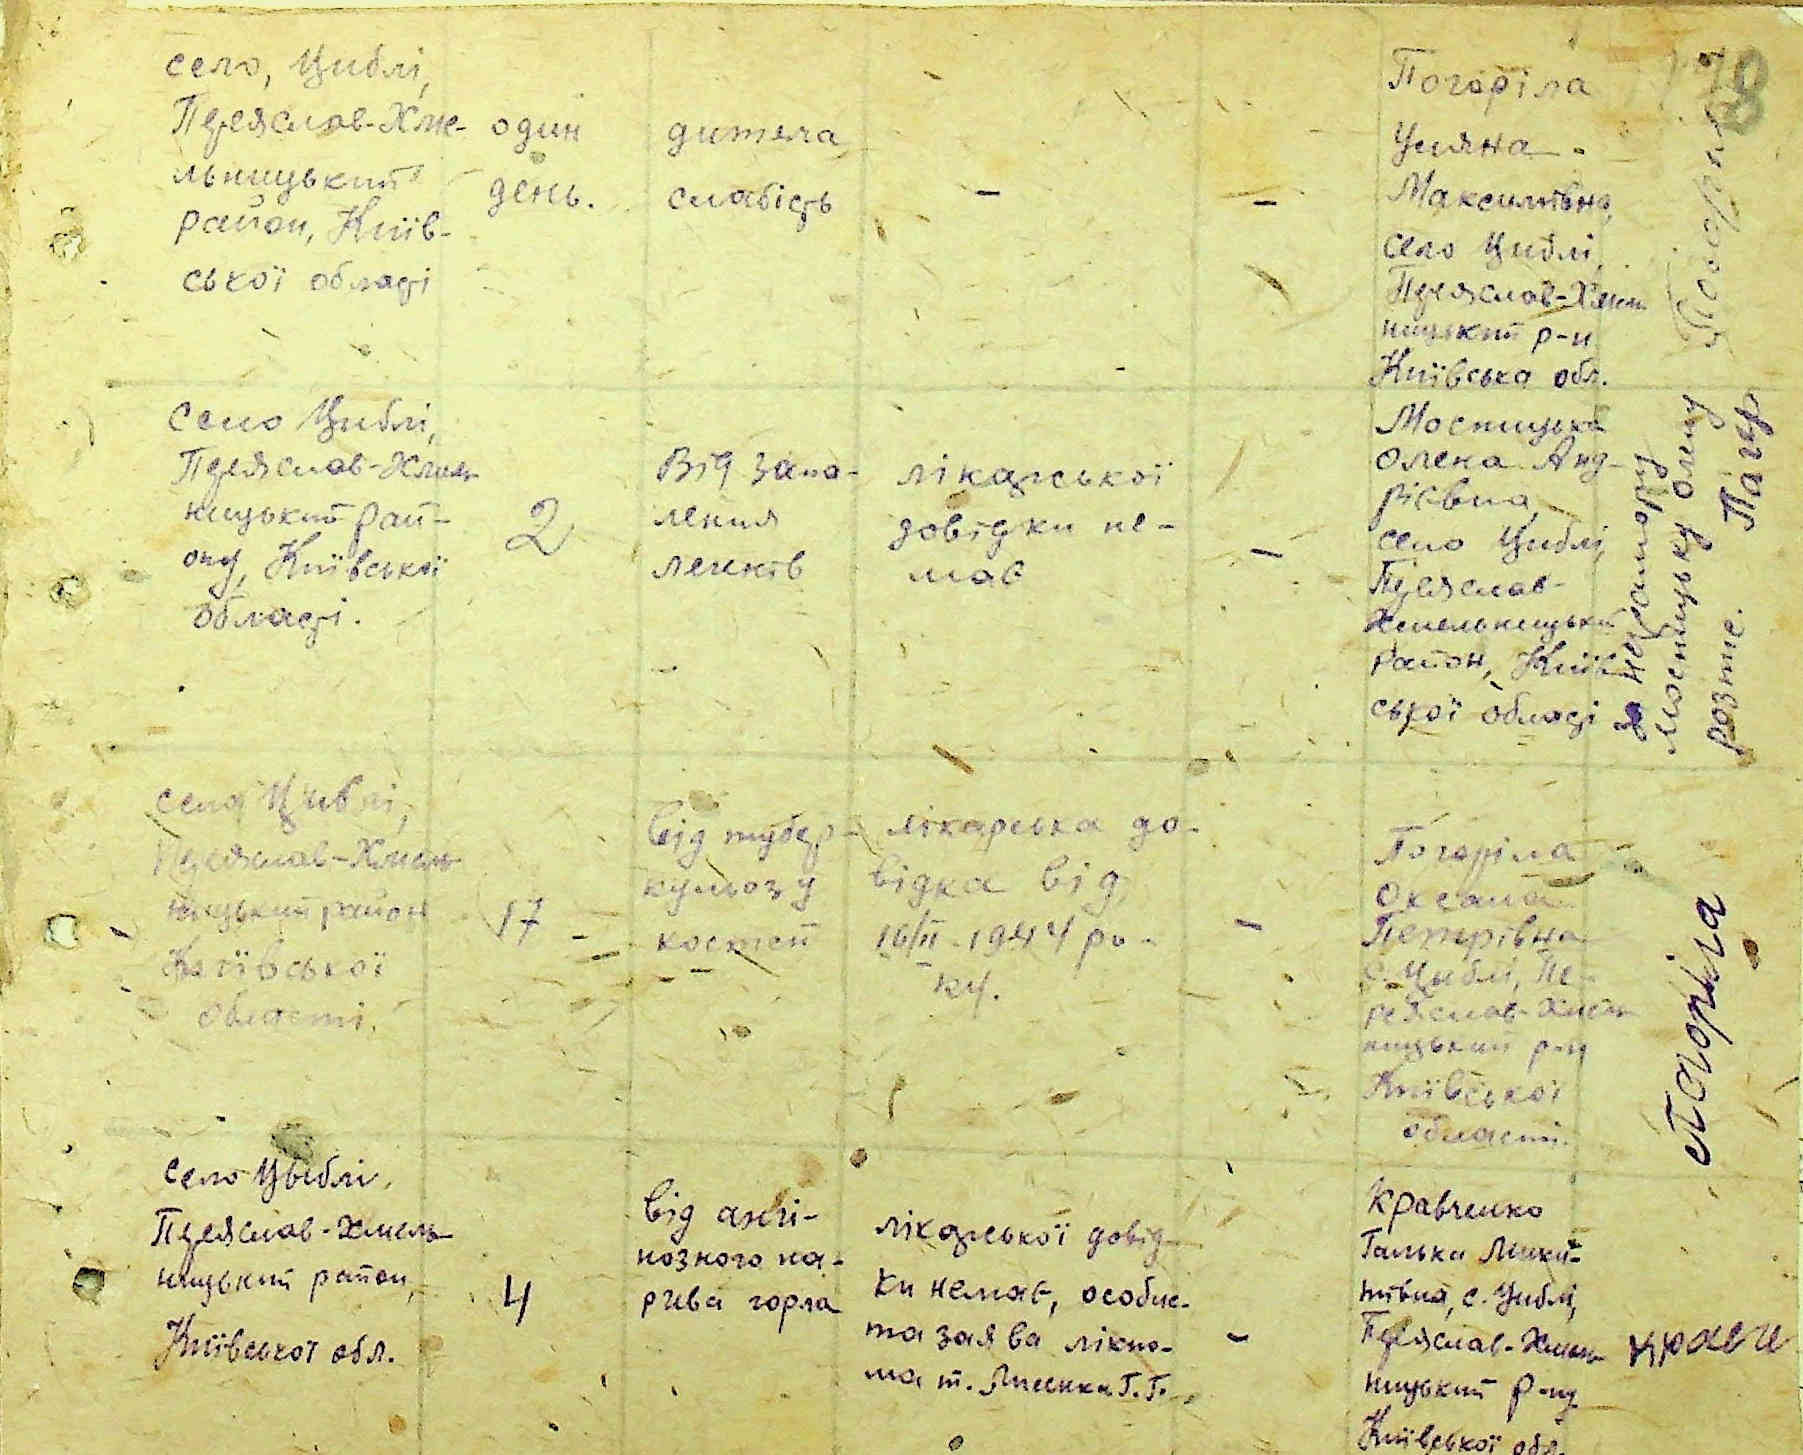 78
село, Циблі,
Переяслав-Хме-
льницький
район, Київ-
ської області
один
день.
дитяча
слабість
-
-
Погоріла
Уляна
Максимівна,
село Циблі,
Переяслав-Хмель
ницький р-н
Київська обл.
Погоріла
Село Циблі,
Переяслав-Хмель
ницький рай-
ону, Київської
області.
2
Від запа-
лення
легенів
лікарської
довідки не-
має
-
Мостицька
Олена Анд-
ріївна,
село Циблі,
Переяслав-
Хмельницький
район, Київ-
ської області
за неграмотну
Мостицьку Олену
розпис.
село Циблі,
Переяслав-Хмель
ницький район
Київської
області.
17
від тубер-
кульозу
костей
лікарська до-
відка від
16/II-1944 ро-
ку.
-
Погоріла
Оксана
Петрівна
с. Циблі, Пе-
реяслав-Хмель
ницький р-ну
Київської
області.
Погоріла
село Циблі,
Переяслав-Хмель
ницький район,
Київської обл.
4
від ангі-
нозного на-
рива горла
лікарської довід-
ки немає, особис-
та заява лікпо-
ма т. Г.Г.
-
Кравченко
Галька Мики-
тівна, с. Циблі,
Переяслав-Хмель
ницький р-ну
Київської обл.
Кравч